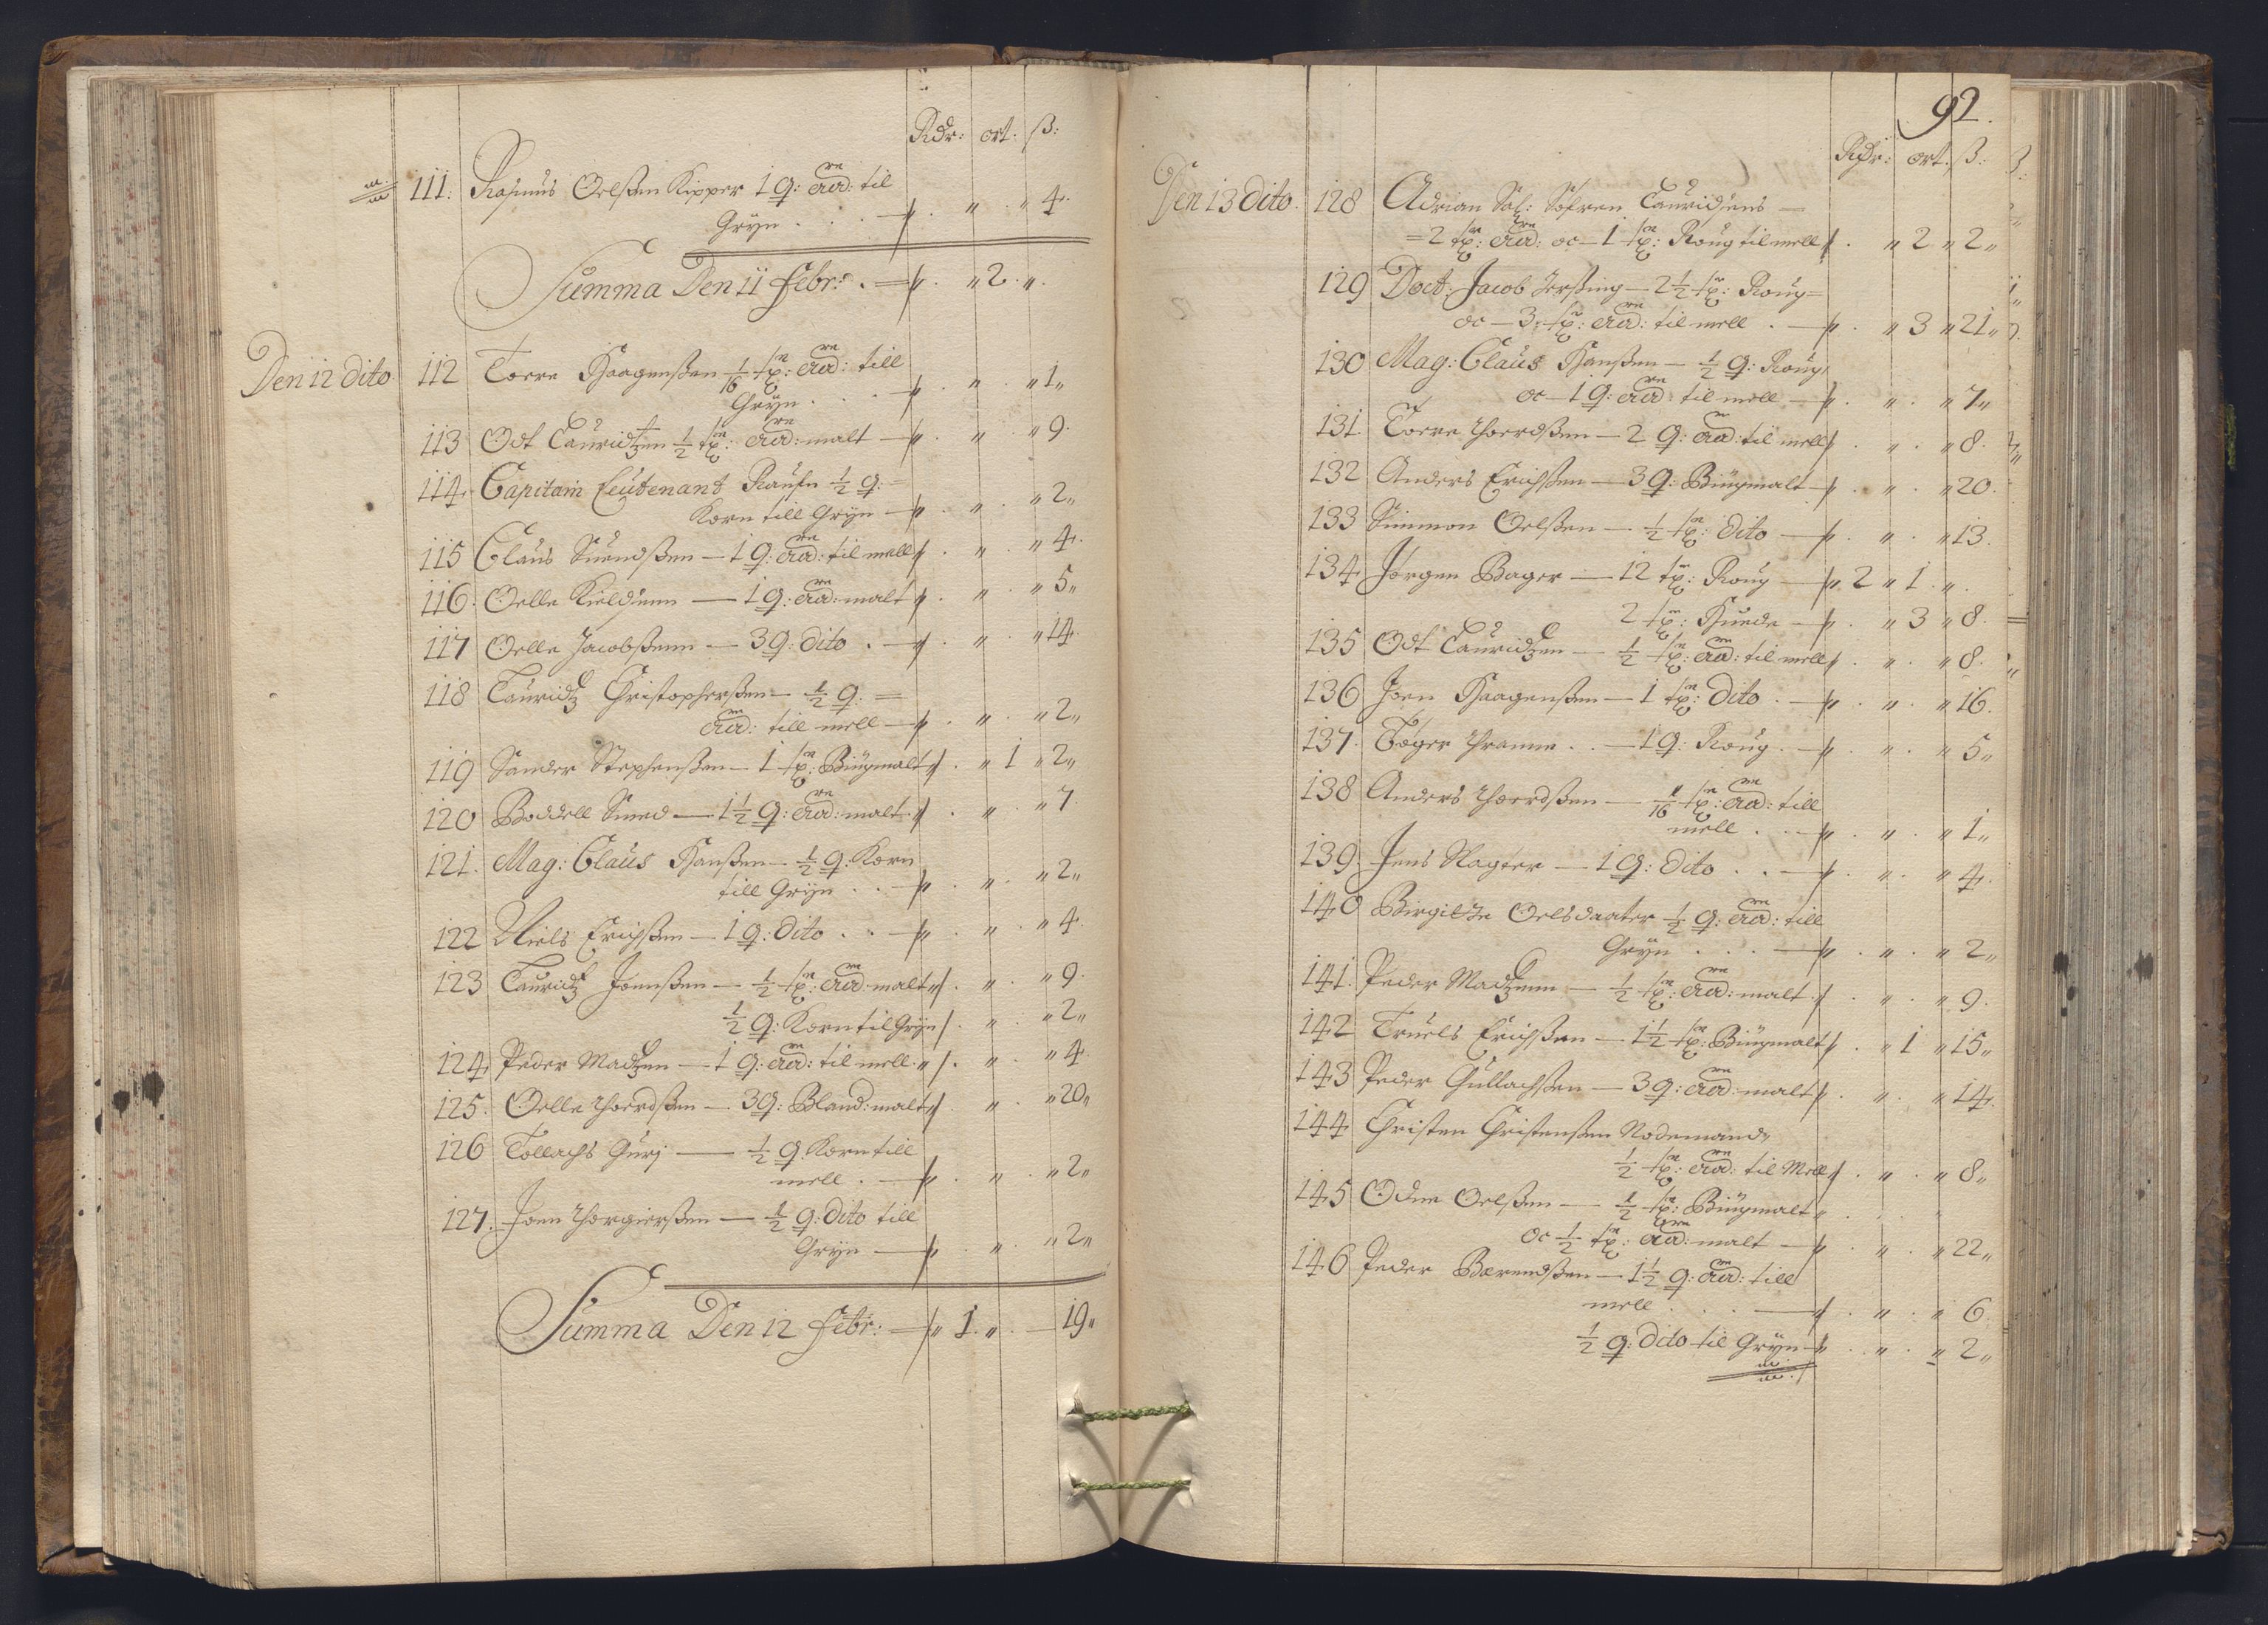 Rdr: ort. ß:
111. Rasmus Oelßen Kipper 1 q: til
Gryn . . " " 4.
Summa Den 11 Febr: . " 2 ".
Den 12 Dito 112 Torre Haagenßen 1/16 tp: till
Gryn . . . " " 1"
113 Odt Lauridtzen 1/2 tp: malt " " 9.
114. Capitain Leutenant 1/2 q: =
Korn till Gryn " " 2"
115 Claus Suendßen — 1 q: til mell " " 4.
116. Oelle Kieldsenn — 1 q: malt " " 5"
117 Oelle Jacobßenn — 3 q: dito . " " 14.
118 Lauridtz Christopherßen — 1/2 q: =
till mell " " 2"
119 Sander Stephenßen — 1 tp: Biugmalt " 1 " 2"
120 Boddell Smed — 1 1/2 q: malt " " 7
121. Mag: Claus Hanßen — 1/2 q: Korn
till Gryn . . " " 2"
122 Niels Erichßen — 1 q: dito . . " " 4.
123 Lauridtz Joenßen — 1/2 tp: malt " " 9.
1/2 q: Korn til Gryn " " 2"
124. Peder Madtzen — 1 q: til mell " " 4.
125. Oelle Thordßen — 3 q: Bland: malt " " 20"
126 Tollachs Guri — 1/2 q. Korn till
mell . " " 2"
127. Joen Thorgierßen — 1/2 q: dito till
Gryn " " 2"
Summa Den 12 Febr: " 1. " 19"
92.
Rdr: ort. ß:
Den 13 Dito. 128 Adrian Sal: Søfren Lauridsens —
= 2 tp: oc — 1 tp: Roug til mell " 2 " 2"
129 Doct: Jacob Jerßing — 2 1/2 tp: Roug =
oc — 3 tp: til mell . " 3 " 21"
130 Mag: Claus Hanßen — 1/2 q: Roug
oc — 1 q: til mell " " 7"
131. Torre Thordßen — 2 q: til mell " " 8.
132 Anders Erichßen — 3 q: Biugmalt " " 20.
133 Simmon Oelßen — 1/2 tp: dito " " 13.
134. Jørgen Bager — 12 tp: Roug " 2 " 1. "
2 tp: Huede " 3 " 8.
135 Odt Lauridtzen — 1/2 tp: til mell " " 8.
136 Joen Haagenßen — 1 tp: Dito . " " 16.
137. Tøger . . — 1 q: Roug . " " 5"
138 Anders Thordßen — 1/16 tp: till
mell . . " " 1"
139 Jens Slagter — 1 q: Dito . . " " 4.
140 Birgitte Oelsdaater 1/2 q: till
Gryn . . . " " 2"
141. Peder Madtzenn — 1/2 tp: malt " " 9.
142 Truels Erichßen — 1 1/2 tp: Biugmalt " 1 " 15"
143 Peder Gullachßen — 3 q: malt " " 14.
144 Christen Christenßen Rodemand"
1/2 tp: til Mell " " 8"
145 Odne Oelßen — 1/2 tp: Biugmalt
oc 1/2 tp: malt " " 22"
146 Peder Berendßen — 1 1/2 q: till
mell . . . " " 6.
1/2 q: dito til Gryn " " 2"